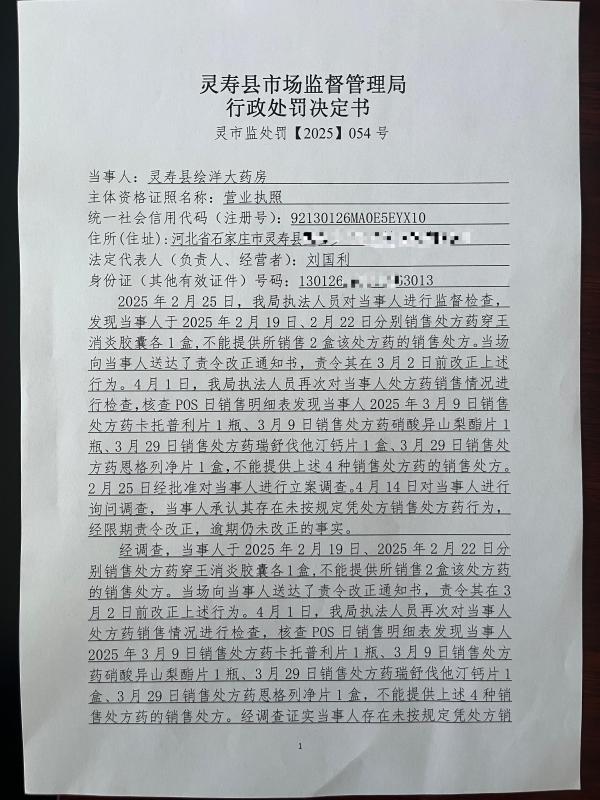 灵寿县市场监督管理局
行政处罚决定书
灵市监处罚【2025】054号
当事人：灵寿县绘洋大药房
主体资格证照名称：营业执照
统一社会信用代码（注册号）：92130126MA0E5EYX10
住所(住址)：河北省石家庄市灵寿县
法定代表人（负责人、经营者）：刘国利
身份证（其他有效证件）号码：130126 63013
2025年2月25日，我局执法人员对当事人进行监督检查，
发现当事人于2025年2月19日、2月22日分别销售处方药穿王
消炎胶囊各1盒,不能提供所销售2盒该处方药的销售处方。当场
向当事人送达了责令改正通知书，责令其在3月2日前改正上述
行为。4月1日，我局执法人员再次对当事人处方药销售情况进
行检查,核查POS日销售明细表发现当事人2025年3月9日销售
处方药卡托普利片1瓶、3月9日销售处方药硝酸异山梨酯片1
瓶、3月29日销售处方药瑞舒伐他汀钙片1盒、3月29日销售处
方药恩格列净片1盒,不能提供上述4种销售处方药的销售处方。
2月25日经批准对当事人进行立案调查。4月14日对当事人进行
询问调查，当事人承认其存在未按规定凭处方销售处方药行为，
经限期责令改正，逾期仍未改正的事实。
经调查，当事人于2025年2月19日、2025年2月22日分
别销售处方药穿王消炎胶囊各1盒,不能提供所销售2盒该处方药
的销售处方。当场向当事人送达了责令改正通知书，责令其在3
月2日前改正上述行为。4月1日，我局执法人员再次对当事人
处方药销售情况进行检查，核查POS日销售明细表发现当事人
2025年3月9日销售处方药卡托普利片1瓶、3月9日销售处方
药硝酸异山梨酯片1瓶、3月29日销售处方药瑞舒伐他汀钙片1
盒、3月29日销售处方药恩格列净片1盒，不能提供上述4种销
售处方药的销售处方。经调查证实当事人存在未按规定凭处方销
1